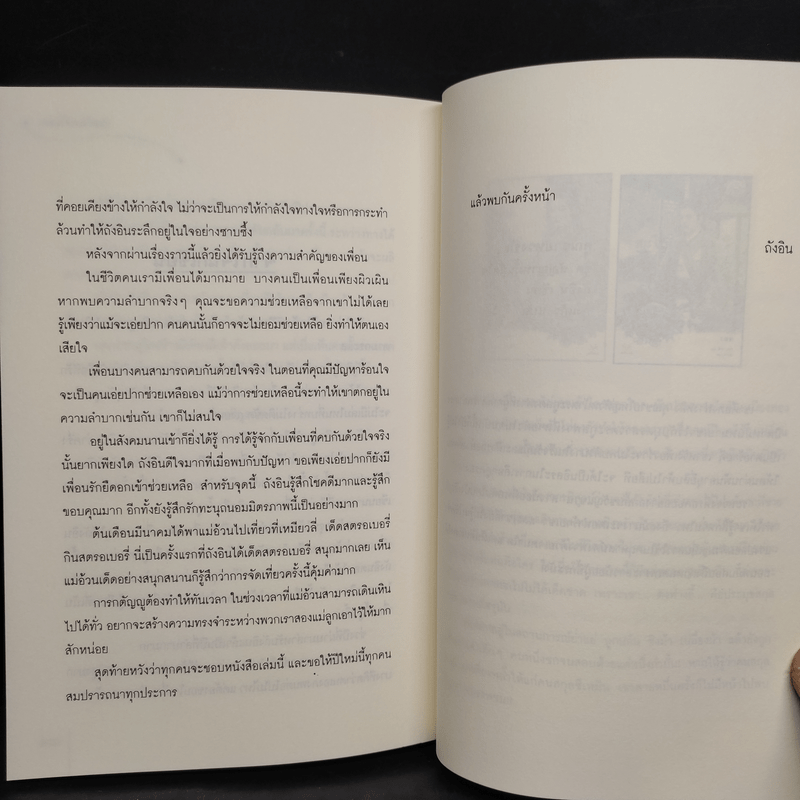 ที่คอยเคียงข้างให้กำลังใจ ไม่ว่าจะเป็นการให้กำลังใจทางใจหรือการกระทำ
ล้วนทำให้ถังอินระลึกอยู่ในใจอย่างซาบซึ้ง
หลังจากผ่านเรื่องราวนี้แล้วยิ่งได้รับรู้ถึงความสำคัญของเพื่อน
ในชีวิตคนเรามีเพื่อนได้มากมาย บางคนเป็นเพื่อนเพียงผิวเผิน
หากพบความลำบากจริงๆ คุณจะขอความช่วยเหลือจากเขาไม่ได้เลย
รู้เพียงว่าแม้จะเอ่ยปาก คนคนนั้นก็อาจจะไม่ยอมช่วยเหลือ ยิ่งทำให้ตนเอง
เสียใจ
เพื่อนบางคนสามารถคบกันด้วยใจจริง ในตอนที่คุณมีปัญหาร้อนใจ
จะเป็นคนเอ่ยปากช่วยเหลือเอง แม้ว่าการช่วยเหลือนี้จะทำให้เขาตกอยู่ใน
ความลำบากเช่นกัน เขาก็ไม่สนใจ
อยู่ในสังคมนานเข้าก็ยิ่งได้รู้ การได้รู้จักกับเพื่อนที่คบกันด้วยใจจริง
นั้นยากเพียงใด ถังอินดีใจมากที่เมื่อพบกับปัญหา ขอเพียงเอ่ยปากก็ยังมี
เพื่อนรักยืดอกเข้าช่วยเหลือ สำหรับจุดนี้ ถังอินรู้สึกโชคดีมากและรู้สึก
ขอบคุณมาก อีกทั้งยังรู้สึกรักทะนุถนอมมิตรภาพนี้เป็นอย่างมาก
ต้นเดือนมีนาคมได้พาแม่อ้วนไปเที่ยวที่เหมียวลี่ เด็ดสตรอเบอรี่
กินสตรอเบอรี่ นี่เป็นครั้งแรกที่ถังอินได้เด็ดสตรอเบอรี่ สนุกมากเลย เห็น
แม่อ้วนเด็ดอย่างสนุกสนานก็รู้สึกว่าการจัดเที่ยวครั้งนี้คุ้มค่ามาก
การกตัญญูต้องทำให้ทันเวลา ในช่วงเวลาที่แม่อ้วนสามารถเดินเหิน
ไปได้ทั่ว อยากจะสร้างความทรงจำระหว่างพวกเราสองแม่ลูกเอาไว้ให้มาก
สักหน่อย
สุดท้ายหวังว่าทุกคนจะชอบหนังสือเล่มนี้ และขอให้ปีใหม่นี้ทุกคน
สมปรารถนาทุกประการ
แล้วพบกันครั้งหน้า
ถังอิน